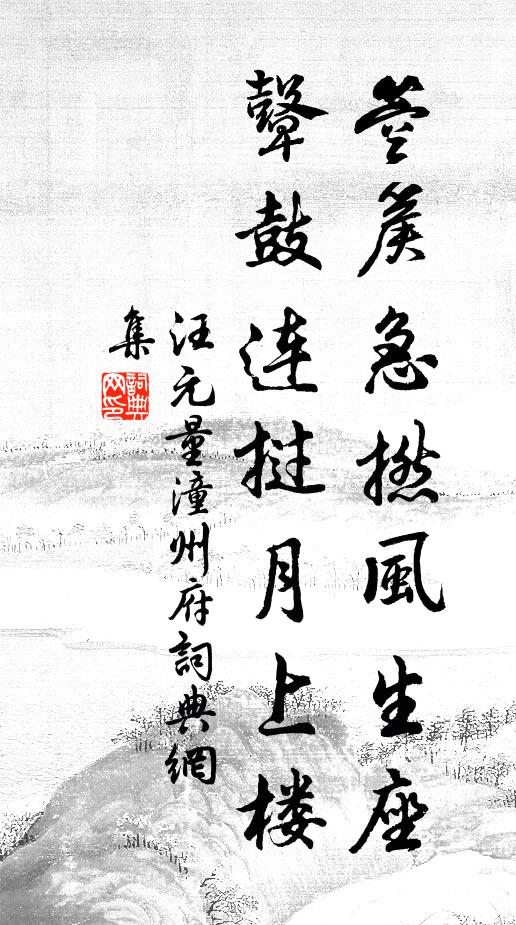 箜篌急撚風生座
鼙鼓連撻月上楼
汪元量潼州府詞典網
集
詞典
网印